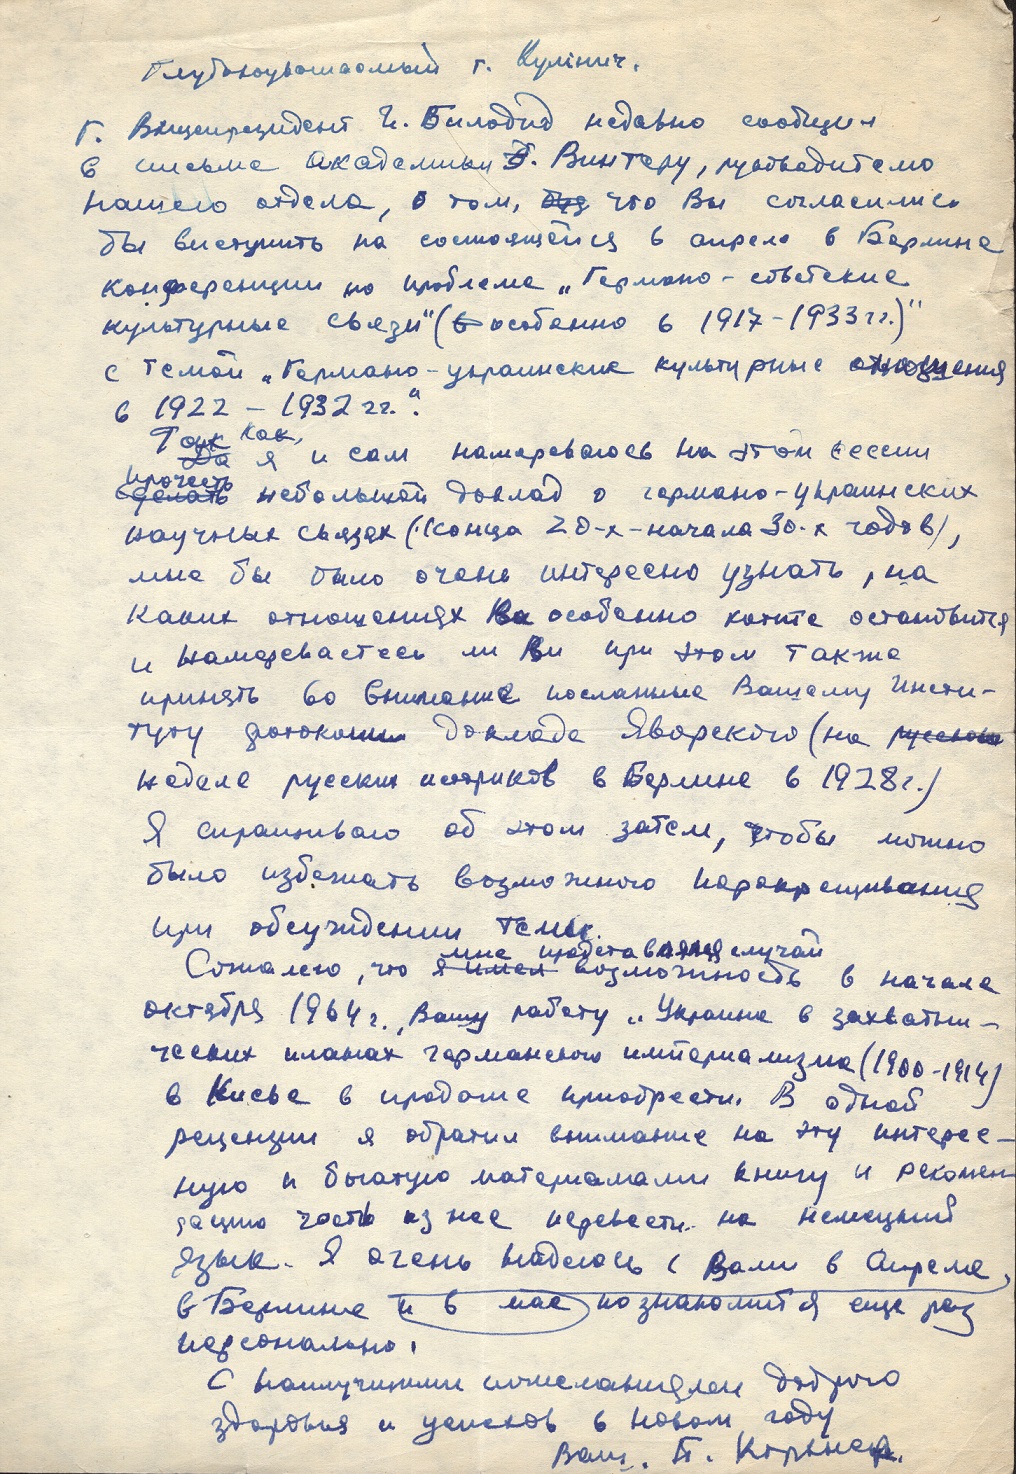 Глубокоуважаемый г. Кулінич.
Г. Вицепрезидент И. Билодид недавно сообщил
в письме академику Э. Винтеру, руководителю
нашего отдела, о том, что Вы согласились
бы виступить на состоящейся в апреле в Берлине
конференции по проблеме „Германо-советские
культурные связи" (особенно в 1917-1933 гг.)"
с темой „Германо-украинские культурные отношения
в 1922 - 1932 гг.".
Так как,
Да я и сам намереваюсь на этой сессии
прочесть
сделать небольшой доклад о германо-украинских
научных связях (конца 20-х - начала 30-х годов),
мне бы было очень интересно узнать, на
каких отношениях Ви особенно хотите остановится
и намереваетесь ли Ви при этом также
принять во внимание посланные Вашему Инсти-
туту фотокопии доклада Яворского (на русского
неделе русских историков в Берлине в 1928 г.)
Я спрашиваю об этом затем, чтобы можно
было избежать возможного перекрещивания
при обсуждении теми.
мне представился случай
Сожалею, что я имел возможность в начале
октября 1964 г., Вашу работу „Украина в захватни-
ческих планах германского империализма (1900-1914)
в Киеве в продаже приобрести. В одной
рецензии я обратил внимание на эту интерес-
ную и богатую материалами книгу и рекомен-
дацию часть из нее перевести на немецкий
язык. Я очень надеюсь с Вами в Апреле,
в Берлине и в мае познакомится еще раз
персонально.
С наилучшими пожеланиями доброго
здоровья и успехов в новом году
Ваш. П.